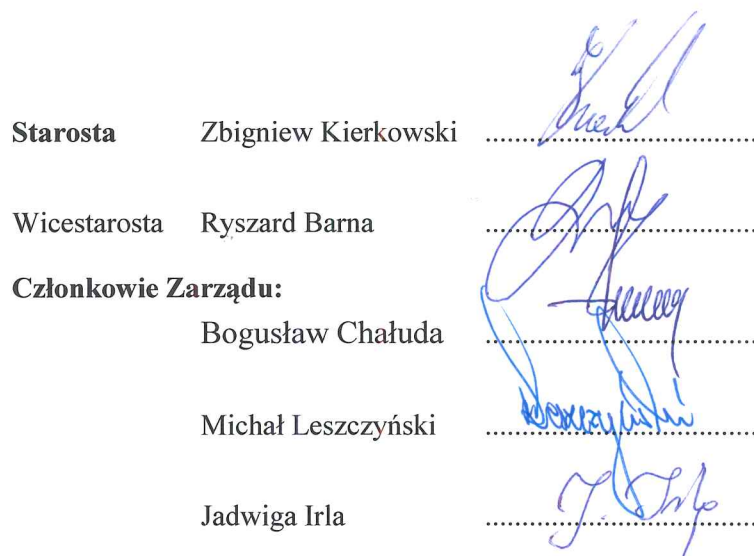 Starosta Zbigniew Kierkowski ........................
Wicestarosta Ryszard Barna ........................
Członkowie Zarządu:
Bogusław Chałuda ........................
Michał Leszczyński ........................
Jadwiga Irla ........................
J. Irla